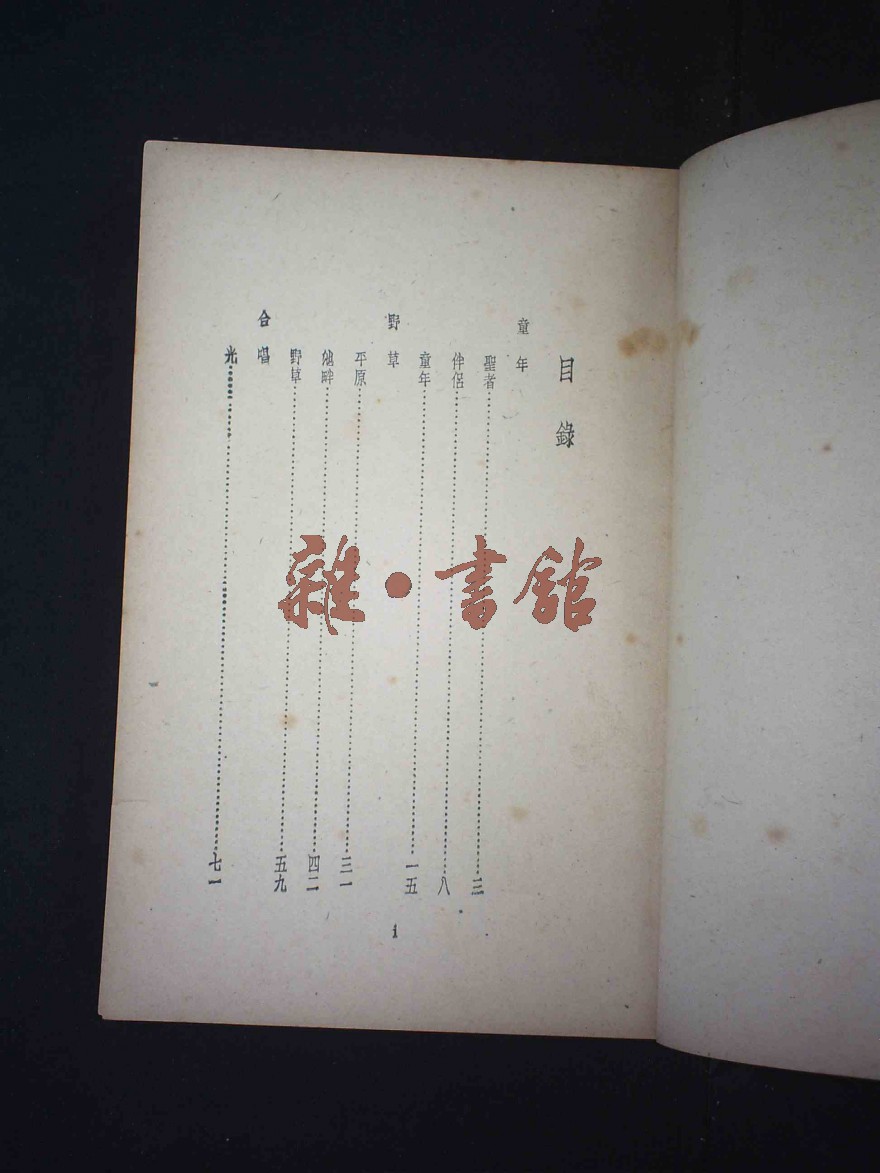 目錄
童年
聖者……三
伴侶……八
童年……一五
野草
平原……三一
池畔……四二
野草……五九
合唱
光……七一
1
雜·書館